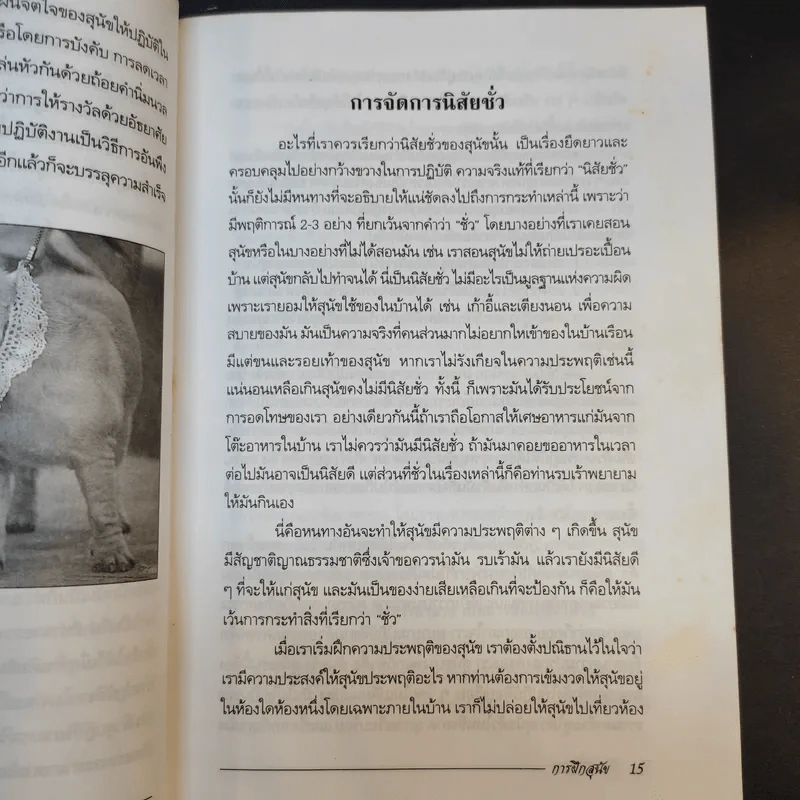 ผนจิตใจของสุนัขให้ปฏิบัติใน
รือโดยการบังคับ การลดเวลา
ล่นหัวกันด้วยถ้อยคำนิ่มนวล
ว่าการให้รางวัลด้วยอัธยาศัย
ปฏิบัติงานเป็นวิธีการอันพึง
อีกแล้วก็จะบรรลุความสำเร็จ
การจัดการนิสัยชั่ว
อะไรที่เราควรเรียกว่านิสัยชั่วของสุนัขนั้น เป็นเรื่องยืดยาวและ
ครอบคลุมไปอย่างกว้างขวางในการปฏิบัติ ความจริงแท้ที่เรียกว่า “นิสัยชั่ว”
นั้นก็ยังไม่มีหนทางที่จะอธิบายให้แน่ชัดลงไปถึงการกระทำเหล่านี้ เพราะว่า
มีพฤติการณ์ 2-3 อย่าง ที่ยกเว้นจากคำว่า “ชั่ว” โดยบางอย่างที่เราเคยสอน
สุนัขหรือในบางอย่างที่ไม่ได้สอนมัน เช่น เราสอนสุนัขไม่ให้ถ่ายเปรอะเปื้อน
บ้าน แต่สุนัขกลับไปทำจนได้ นี่เป็นนิสัยชั่ว ไม่มีอะไรเป็นมูลฐานแห่งความผิด
เพราะเรายอมให้สุนัขใช้ของในบ้านได้ เช่น เก้าอี้และเตียงนอน เพื่อความ
สบายของมัน มันเป็นความจริงที่คนส่วนมากไม่อยากให้เข้าของในบ้านเรือน
มีแต่ขนและรอยเท้าของสุนัข หากเราไม่รังเกียจในความประพฤติเช่นนี้
แน่นอนเหลือเกินสุนัขคงไม่มีนิสัยชั่ว ทั้งนี้ ก็เพราะมันได้รับประโยชน์จาก
การอดโทษของเรา อย่างเดียวกันนี้ถ้าเราถือโอกาสให้เศษอาหารแก่มันจาก
โต๊ะอาหารในบ้าน เราไม่ควรว่ามันมีนิสัยชั่ว ถ้ามันมาคอยขออาหารในเวลา
ต่อไปมันอาจเป็นนิสัยดี แต่ส่วนที่ชั่วในเรื่องเหล่านี้ก็คือท่านรบเร้าพยายาม
ให้มันกินเอง
นี่คือหนทางอันจะทำให้สุนัขมีความประพฤติต่าง ๆ เกิดขึ้น สุนัข
มีสัญชาติญาณธรรมชาติซึ่งเจ้าของควรนำมัน รบเร้ามัน แล้วเรายังมีนิสัยดี
ๆ ที่จะให้แก่สุนัข และมันเป็นของง่ายเสียเหลือเกินที่จะป้องกัน ก็คือให้มัน
เว้นการกระทำสิ่งที่เรียกว่า “ชั่ว”
เมื่อเราเริ่มฝึกความประพฤติของสุนัข เราต้องตั้งปณิธานไว้ในใจว่า
เรามีความประสงค์ให้สุนัขประพฤติอะไร หากท่านต้องการเข้มงวดให้สุนัขอยู่
ในห้องใดห้องหนึ่งโดยเฉพาะภายในบ้าน เราก็ไม่ปล่อยให้สุนัขไปเที่ยวห้อง
การฝึกสุนัข 15